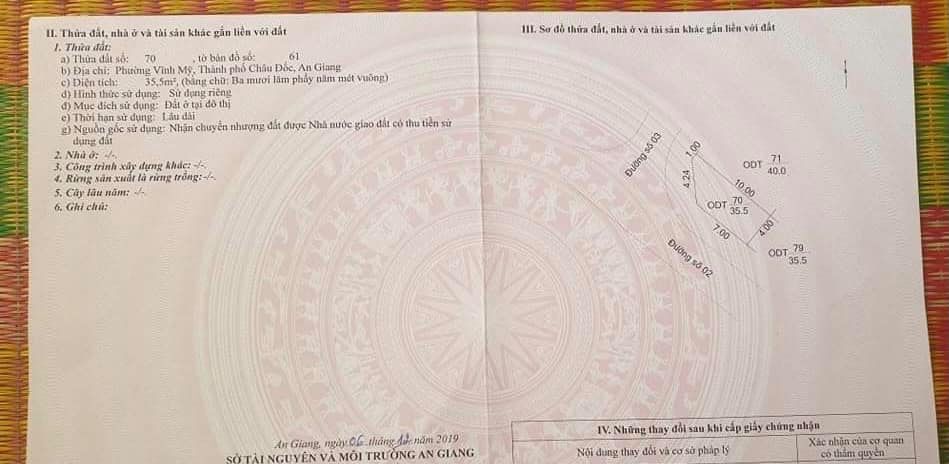 II. Thửa đất, nhà ở và tài sản khác gắn liền với đất
1. Thửa đất:
a) Thửa đất số: 70 , tờ bản đồ số: 61
b) Địa chỉ: Phường Vĩnh Mỹ, Thành phố Châu Đốc, An Giang
c) Diện tích: 35,5m², (bằng chữ: Ba mươi lăm phẩy năm mét vuông)
d) Hình thức sử dụng: Sử dụng riêng
đ) Mục đích sử dụng: Đất ở tại đô thị
e) Thời hạn sử dụng: Lâu dài
g) Nguồn gốc sử dụng: Nhận chuyển nhượng đất được Nhà nước giao đất có thu tiền sử
dụng đất
2. Nhà ở: -/-.
3. Công trình xây dựng khác: -/-.
4. Rừng sản xuất là rừng trồng: -/-.
5. Cây lâu năm: -/-.
6. Ghi chú:
An Giang, ngày 06 tháng 12 năm 2019
SỞ TÀI NGUYÊN VÀ MÔI TRƯỜNG AN GIANG
III. Sơ đồ thửa đất, nhà ở và tài sản khác gắn liền với đất
Đường số 03
1.00
4.24
ODT 71
40.0
10.00
ODT 70
35.5
7.00
4.00
Đường số 02
ODT 79
35.5
IV. Những thay đổi sau khi cấp giấy chứng nhận
Nội dung thay đổi và cơ sở pháp lý
Xác nhận của cơ quan
có thẩm quyền